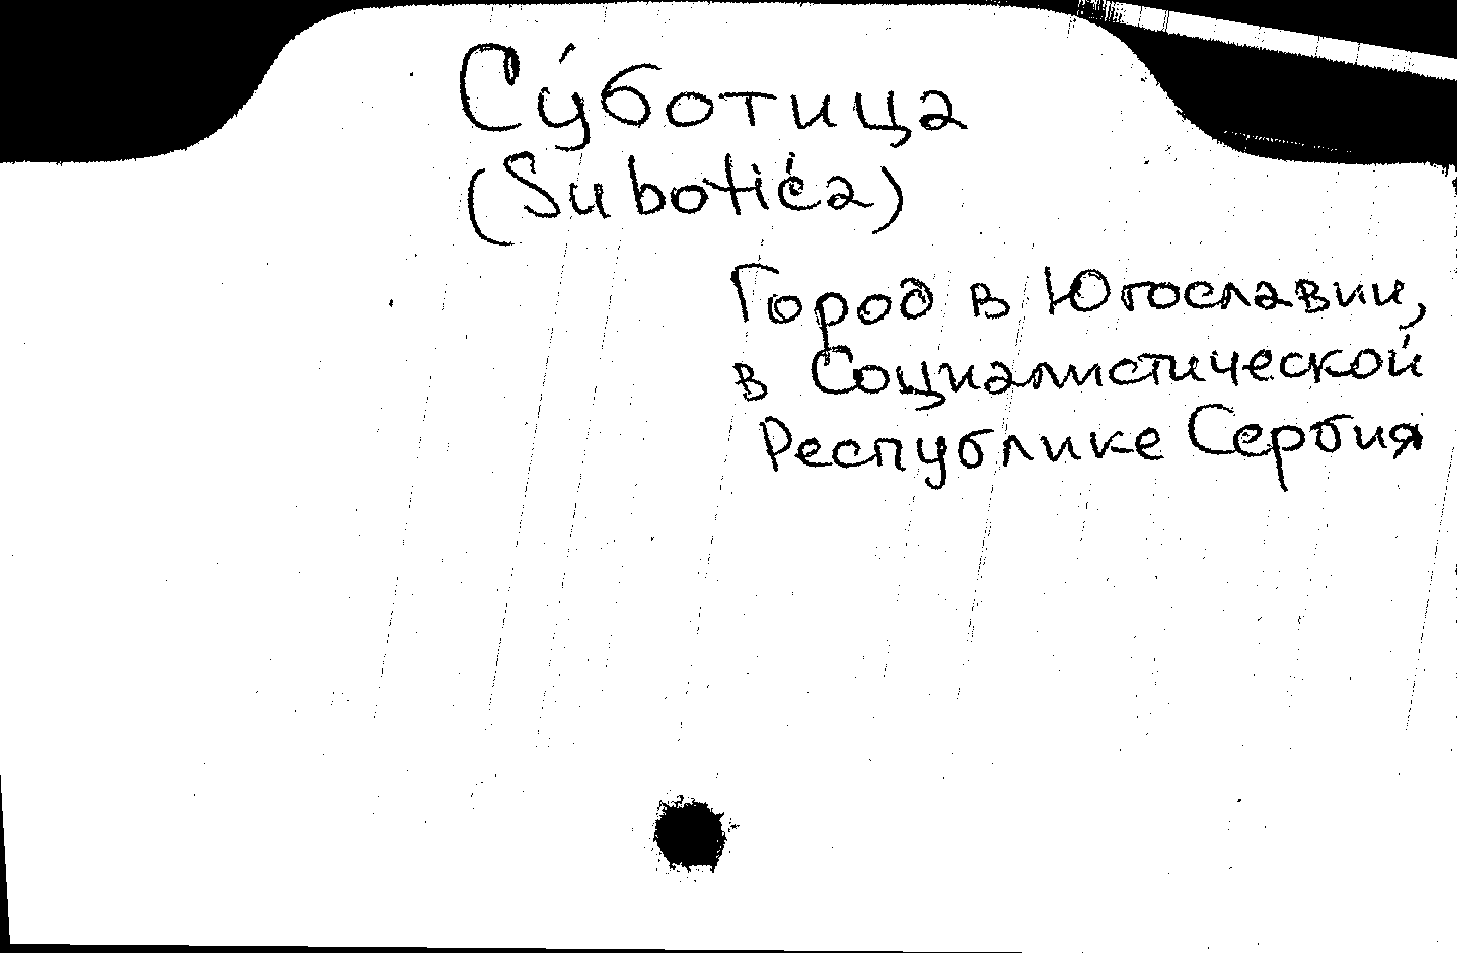 Су́ботица
(Subotića)
Город в Югославии,
в Социалистической
Республике Сербия